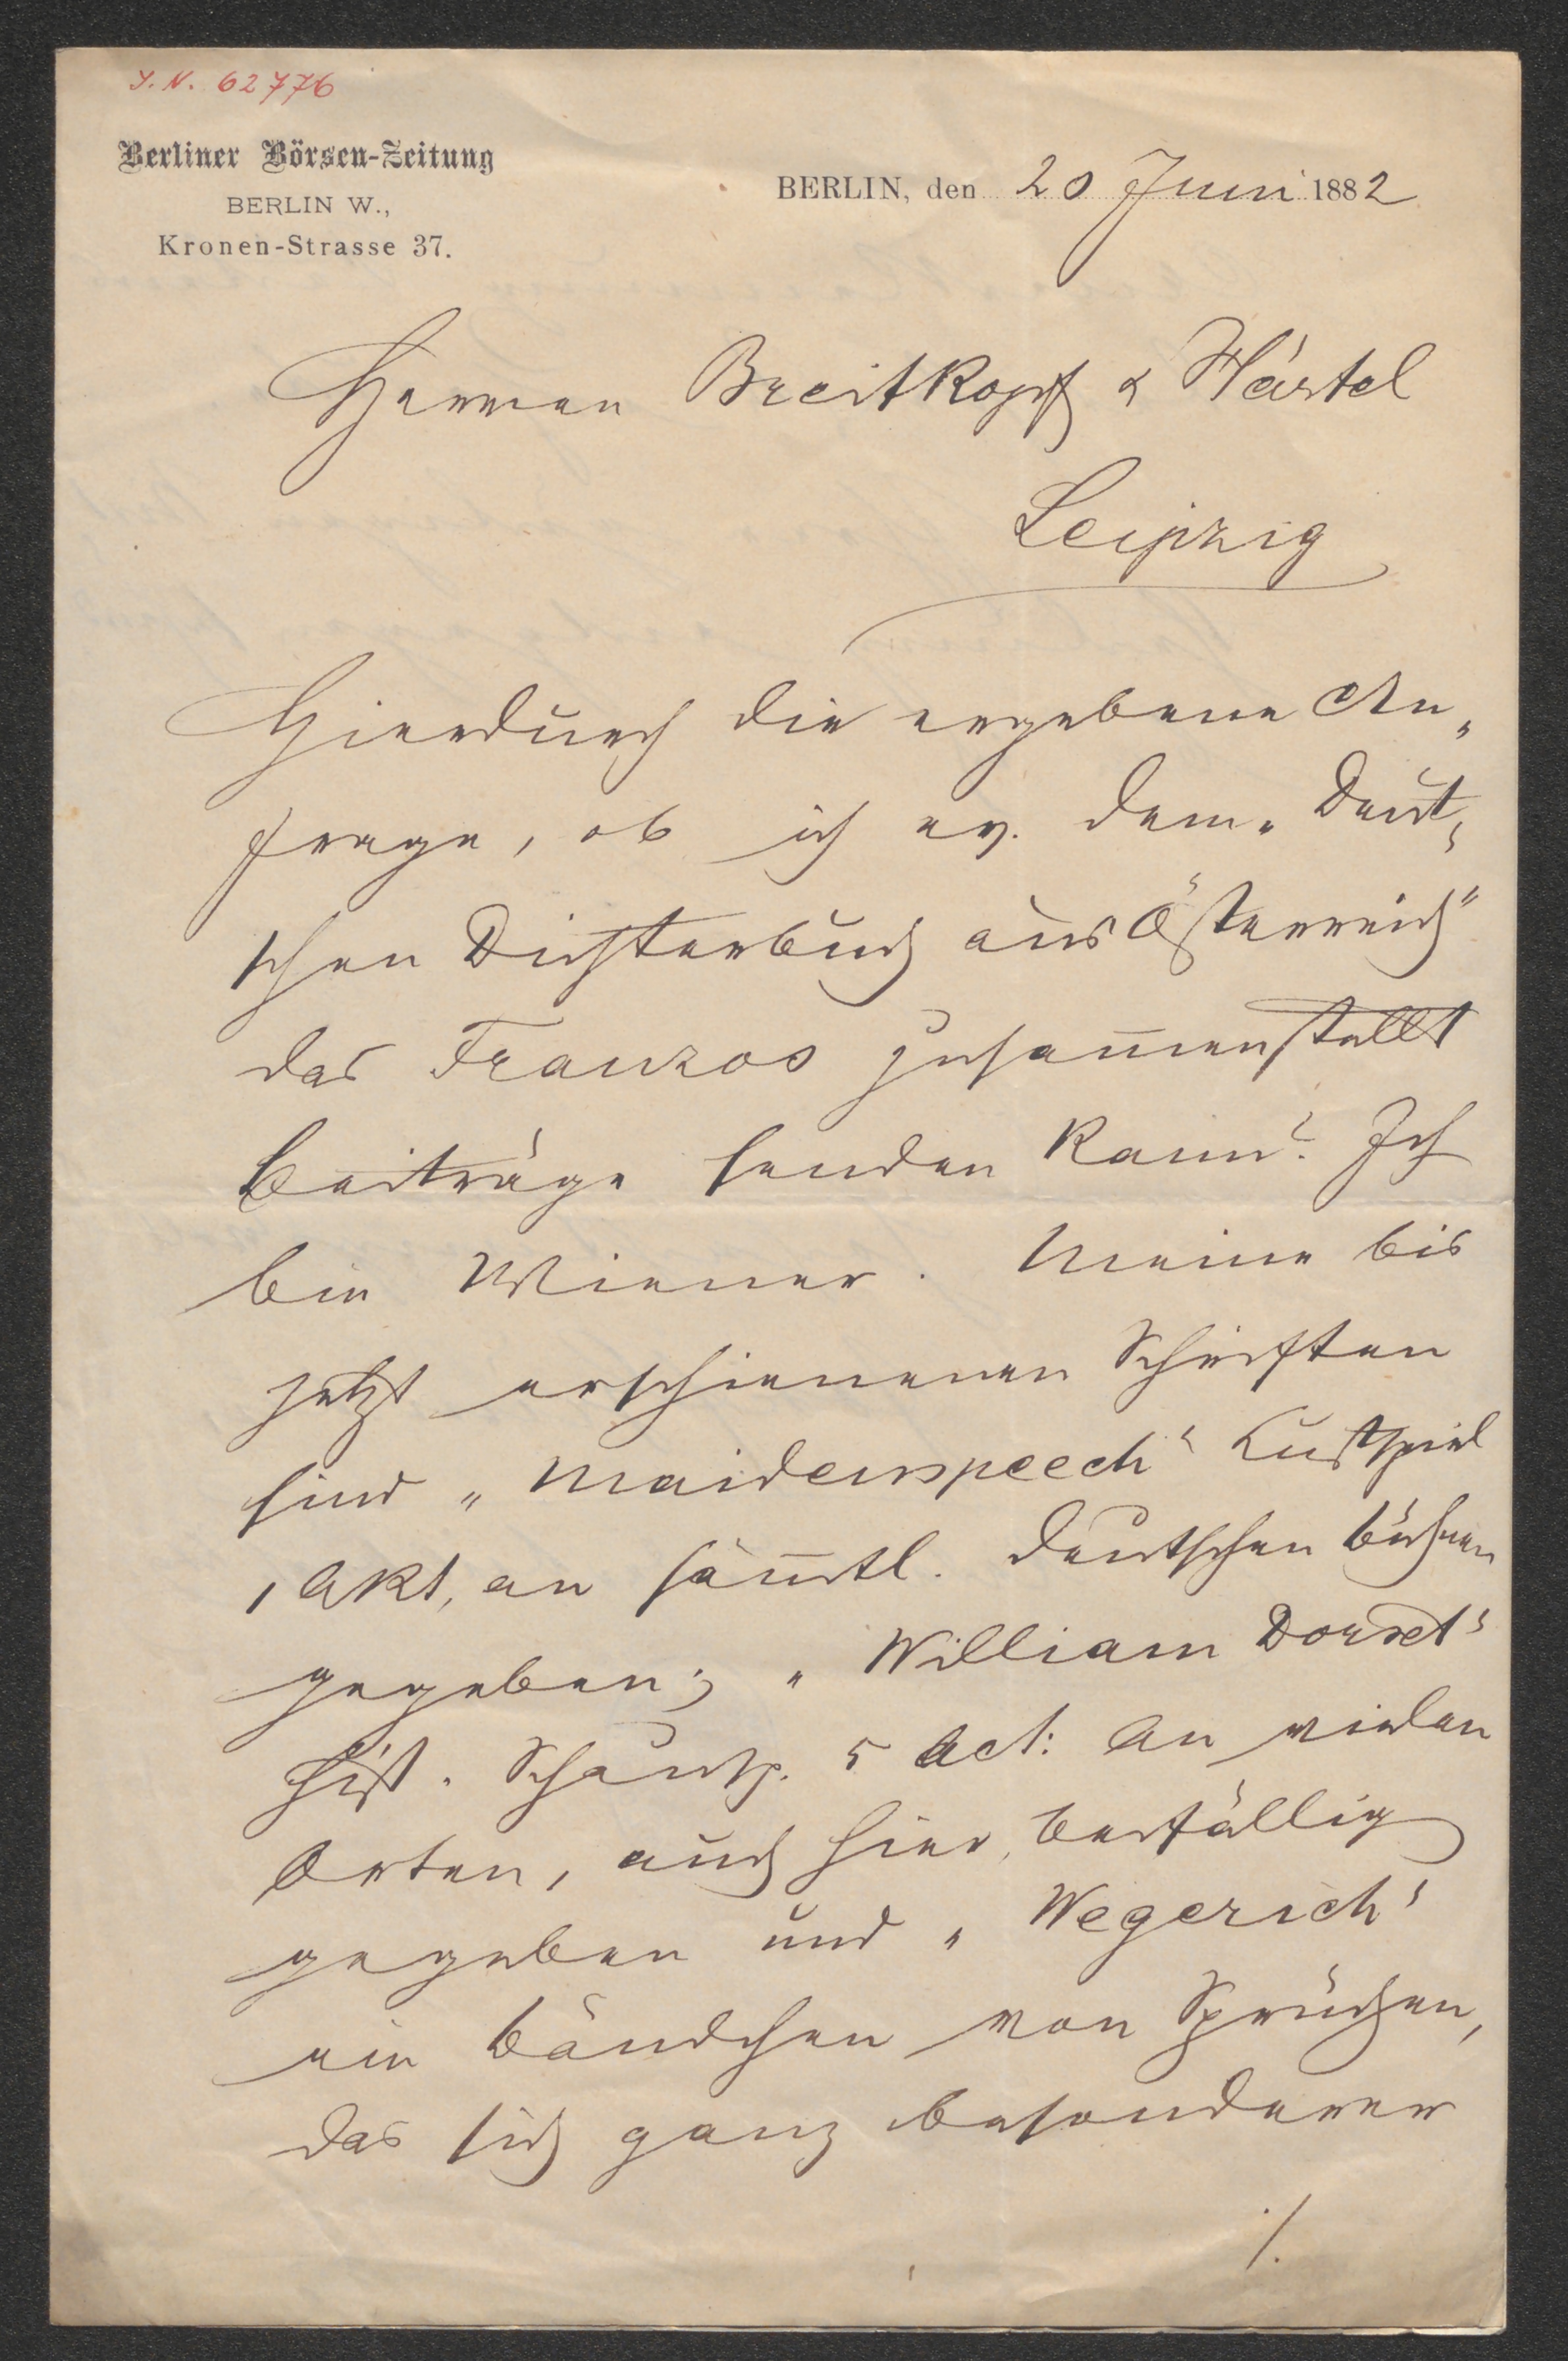 J. N. 62776
Berliner Börsen-Zeitung
BERLIN W.,
Kronen-Strasse 37.
BERLIN, den 20 Juni 1882
Herren Breitkopf & Härtel
Leipzig
Hierdurch die ergebene An-
frage, ob ich ev. dem „Deut-
schen Dichterbuch aus Österreich"
das Franzos zusam̅enstellt
Beiträge senden kann? Ich
bin Wiener. Meine bis
jetzt erschienenen Schriften
sind „Maidenspeech" Lustspiel
1 Akt, an säm̅tl. deutschen Bühnen
gegeben; „William Dorset"
hist. Schausp. 5 Act: An vielen
Orten, auch hier, beifällig
gegeben und „Wegerich"
ein Bändchen von Sprüchen,
das sich ganz besonderer
./.